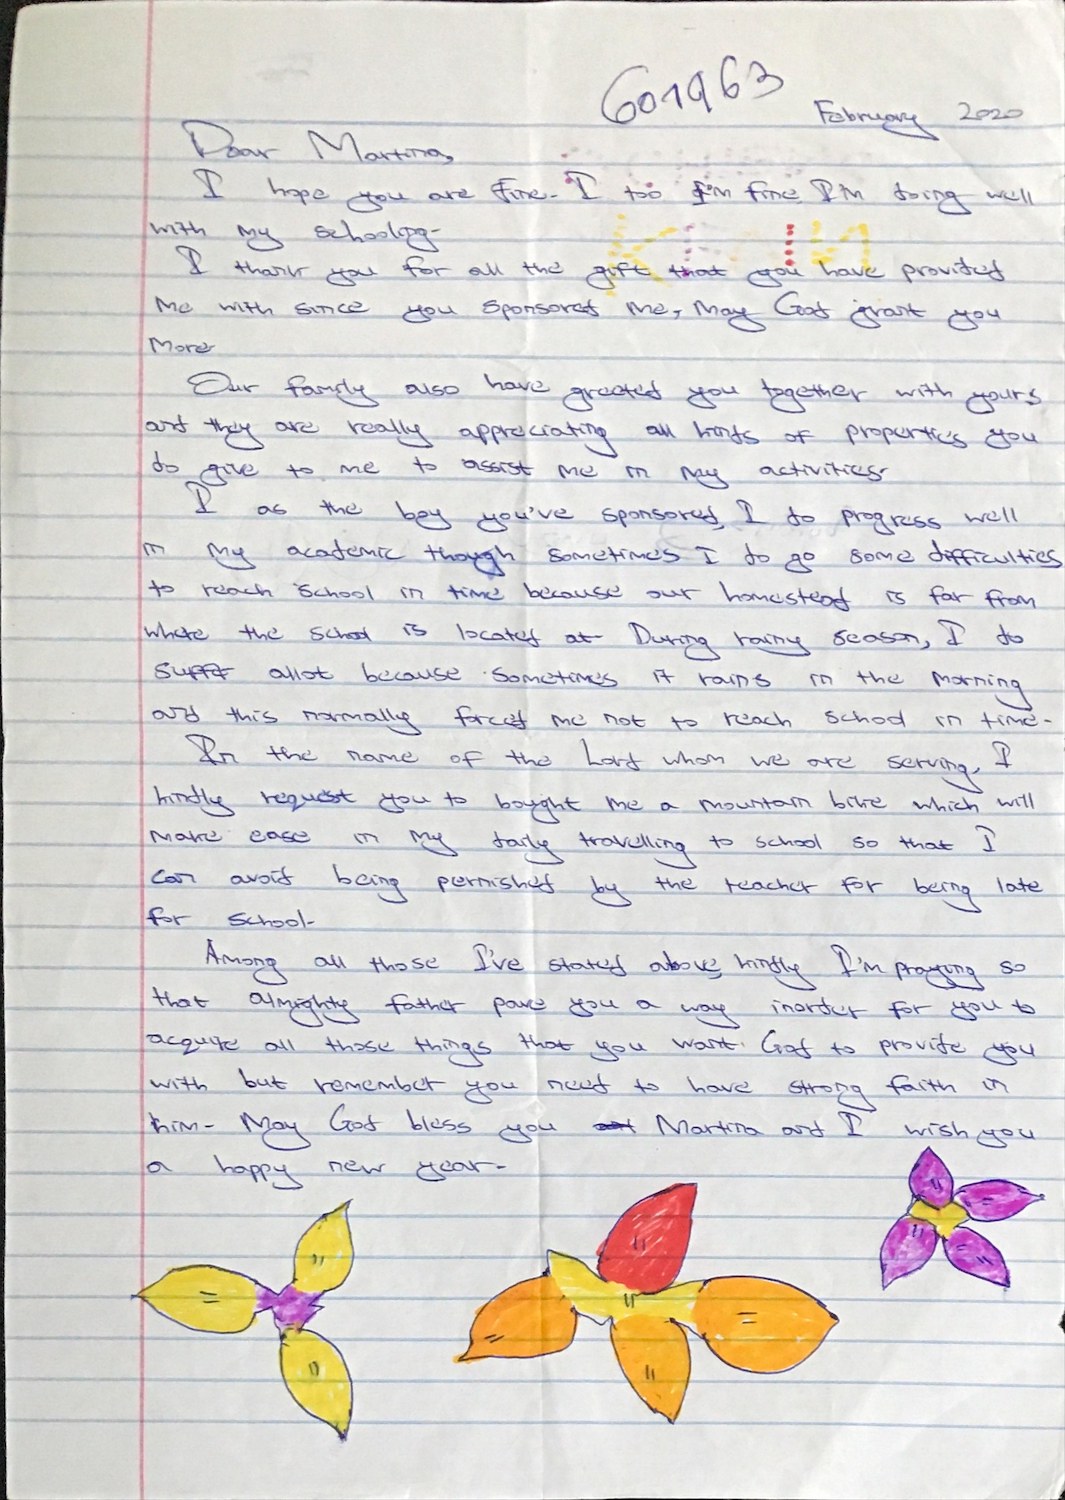 601963
February 2020
Dear Martina,
I hope you are fine. I too I'm fine I'm doing well
with my schooling.
I thank you for all the gift that you have provided
me with since you sponsored me, may God grant you
more
Our family also have greeted you together with yours
and they are really appreciating all kinds of properties you
do give to me to assist me in my activities.
I as the boy you've sponsored, I do progress well
in my academic though sometimes I do go some difficulties
to reach school in time because our homestead is far from
where the school is located at. During rainy season, I do
allot because sometimes it rains in the morning
and this normally forced me not to reach school in time.
In the name of the Lord whom we are serving, I
kindly request you to bought me a mountain bike which will
make ease in my daily travelling to school so that I
can avoid being pernished by the teacher for being late
for school.
Among all those I've stated above, kindly I'm praying so
that almighty father pave you a way inorder for you to
acquire all those things that you want God to provide you
with but remember you need to have strong faith in
him. May God bless you Martina and I wish you
a happy new year.